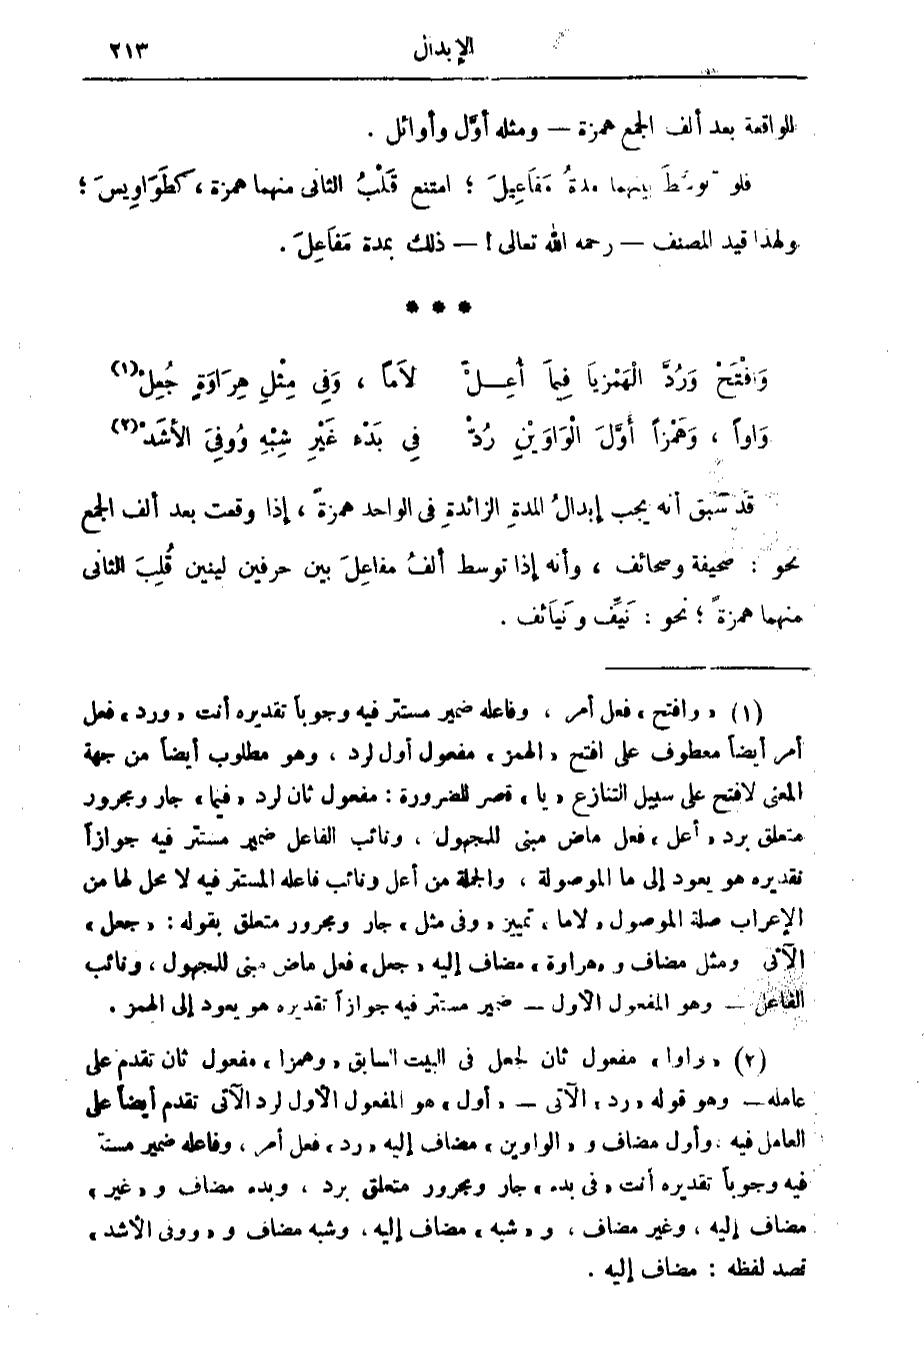 الإبدال ٢١٣
للواقعة بعد ألف الجمع همزة — ومثله أوَّل وأوائل .
فلو توسَّطَ بينهما مدةُ مَفَاعِيلَ ؛ امتنع قَلْبُ الثانى منهما همزة ، كطَوَاوِيسَ ؛
ولهذا قيد المصنف — رحمه الله تعالى ! — ذلك بمدة مَفَاعِلَ .
* * *
وَافْتَحْ وَرُدَّ الْهَمْزَ يَا فِيمَا أُعِلّْ لَاماً ، وَفِى مِثْلِ هِرَاوَةٍ جُعِلْ (١)
وَاواً ، وَهَمْزاً أَوَّلَ الْوَاوَيْنِ رُدّْ فِى بَدْءِ غَيْرِ شِبْهِ وُوفِىَ الأشَدّْ (٢)
قد سبق أنه يجب إبدالُ المدةِ الزائدةِ فى الواحد همزةً ، إذا وقعت بعد ألف الجمع
نحو : صحيفة وصحائف ، وأنه إذا توسط ألفُ مفاعِلَ بين حرفين لينين قُلِبَ الثانى
منهما همزةً ؛ نحو : نَيِّف ونَيَائف .
(١) « وافتح » فعل أمر ، وفاعله ضمير مستتر فيه وجوباً تقديره أنت « ورد » فعل
أمر أيضاً معطوف على افتح « الهمز » مفعول أول لرد ، وهو مطلوب أيضاً من جهة
المعنى لافتح على سبيل التنازع « يا » قصر للضرورة : مفعول ثان لرد « فيما » جار ومجرور
متعلق برد « أعل » فعل ماض مبنى للمجهول ، ونائب الفاعل ضمير مستتر فيه جوازاً
تقديره هو يعود إلى ما الموصولة ، والجملة من أعل ونائب فاعله المستتر فيه لا محل لها من
الإعراب صلة الموصول « لاما » تمييز « وفى مثل » جار ومجرور متعلق بقوله : « جعل »
الآتى ومثل مضاف و « هراوة » مضاف إليه « جعل » فعل ماض مبنى للمجهول ، ونائب
الفاعل — وهو المفعول الأول — ضمير مستتر فيه جوازاً تقديره هو يعود إلى الهمز .
(٢) « واوا » مفعول ثان لجعل فى البيت السابق « وهمزا » مفعول ثان تقدم على
عامله — وهو قوله « رد » الآتى — « أول » هو المفعول الأول لرد الآتى تقدم أيضاً على
العامل فيه ، وأول مضاف و « الواوين » مضاف إليه « رد » فعل أمر ، وفاعله ضمير
فيه وجوباً تقديره أنت « فى بدء » جار ومجرور متعلق برد ، وبدء مضاف و « غير »
مضاف إليه ، وغير مضاف ، و « شبه » مضاف إليه ، وشبه مضاف و « ووفى الأشد »
قصد لفظه : مضاف إليه .